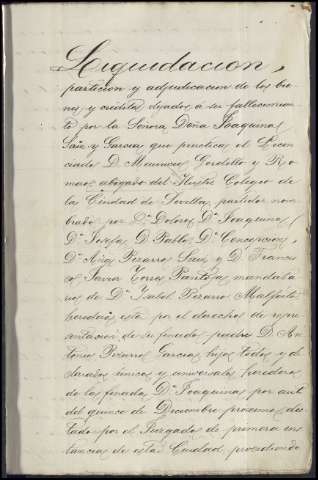 Liquidacion,
particion y adjudicacion de los bie-
nes y creditos dejados á su fallecimien-
to por la Señora Doña Joaquina
Saiz y Garcia que practica el Licen-
ciado D. Mauricio Gordillo y Ro-
man, abogado del Ilustre Colegio de
la Ciudad de Sevilla, partidor nom-
brado por Dª Dolores, Dª Joaquina,
Dª Josefa, D. Pablo, Dª Concepcion,
Dª Ana Pizarro Saiz, y D. Francis-
co Javier Torres Pantoja mandata-
rio de Dª Isabel Pizarro
heredera esta por el derecho de repre-
sentacion de su finado padre D. An-
tonio Pizarro Garcia, hijos todos y de-
clarados unicos y universales herederos
de la finada Dª Joaquina por auto
del quince de Diciembre proximo dic-
tado por el Juzgado de primera ins-
tancia de esta Ciudad procediendo